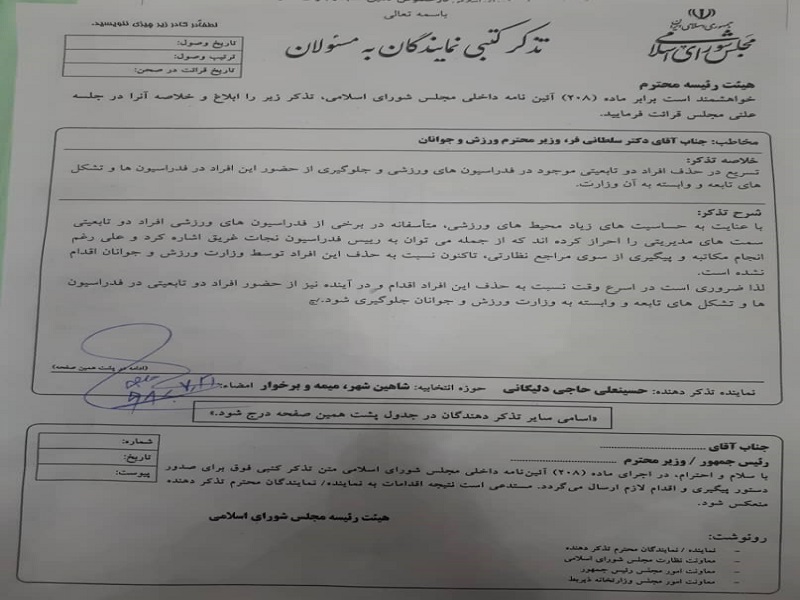 باسمه تعالی
جمهوری اسلامی ایران
مجلس شورای اسلامی
تذکر کتبی نمایندگان به مسئولان
لطفاً در کادر زیر چیزی ننویسید.
تاریخ وصول:
ترتیب وصول:
تاریخ قرائت در صحن:
هیئت رئیسه محترم
خواهشمند است برابر ماده (۲۰۸) آئین نامه داخلی مجلس شورای اسلامی، تذکر زیر را ابلاغ و خلاصه آنرا در جلسه
علنی مجلس قرائت فرمایید.
مخاطب: جناب آقای دکتر سلطانی فر، وزیر محترم ورزش و جوانان
خلاصه تذکر:
تسریع در حذف افراد دو تابعیتی موجود در فدراسیون های ورزشی و جلوگیری از حضور این افراد در فدراسیون ها و تشکل
های تابعه و وابسته به آن وزارت.
شرح تذکر:
با عنایت به حساسیت های زیاد محیط های ورزشی، متأسفانه در برخی از فدراسیون های ورزشی افراد دو تابعیتی
سمت های مدیریتی را احراز کرده اند که از جمله می توان به رییس فدراسیون نجات غریق اشاره کرد و علی رغم
انجام مکاتبه و پیگیری از سوی مراجع نظارتی، تاکنون نسبت به حذف این افراد توسط وزارت ورزش و جوانان اقدام
نشده است.
لذا ضروری است در اسرع وقت نسبت به حذف این افراد اقدام و در آینده نیز از حضور افراد دو تابعیتی در فدراسیون
ها و تشکل های تابعه و وابسته به وزارت ورزش و جوانان جلوگیری شود.
(ادامه در پشت همین صفحه)
نماینده تذکر دهنده: حسینعلی حاجی دلیگانی حوزه انتخابیه: شاهین شهر، میمه و برخوار امضاء:
«اسامی سایر تذکر دهندگان در جدول پشت همین صفحه درج شود.»
جناب آقای
رئیس جمهور / وزیر محترم
شماره:
تاریخ:
پیوست:
با سلام و احترام، در اجرای ماده (۲۰۸) آئین‌نامه داخلی مجلس شورای اسلامی متن تذکر کتبی فوق برای صدور
دستور پیگیری و اقدام لازم ارسال می‌گردد. مستدعی است نتیجه اقدامات به نماینده/ نمایندگان محترم تذکر دهنده
منعکس شود.
هیئت رئیسه مجلس شورای اسلامی
رونوشت:
- نماینده / نمایندگان محترم تذکر دهنده
- معاونت نظارت مجلس شورای اسلامی
- معاونت امور مجلس رئیس جمهور
- معاونت امور مجلس وزارتخانه ذیربط